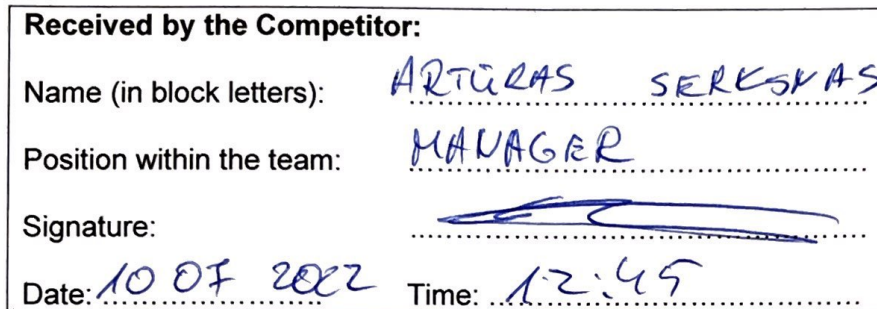 Received by the Competitor:
Name (in block letters): ARTŪRAS SERKSNAS
Position within the team: MANAGER
Signature:
Date: 10 07 2022 Time: 12:45